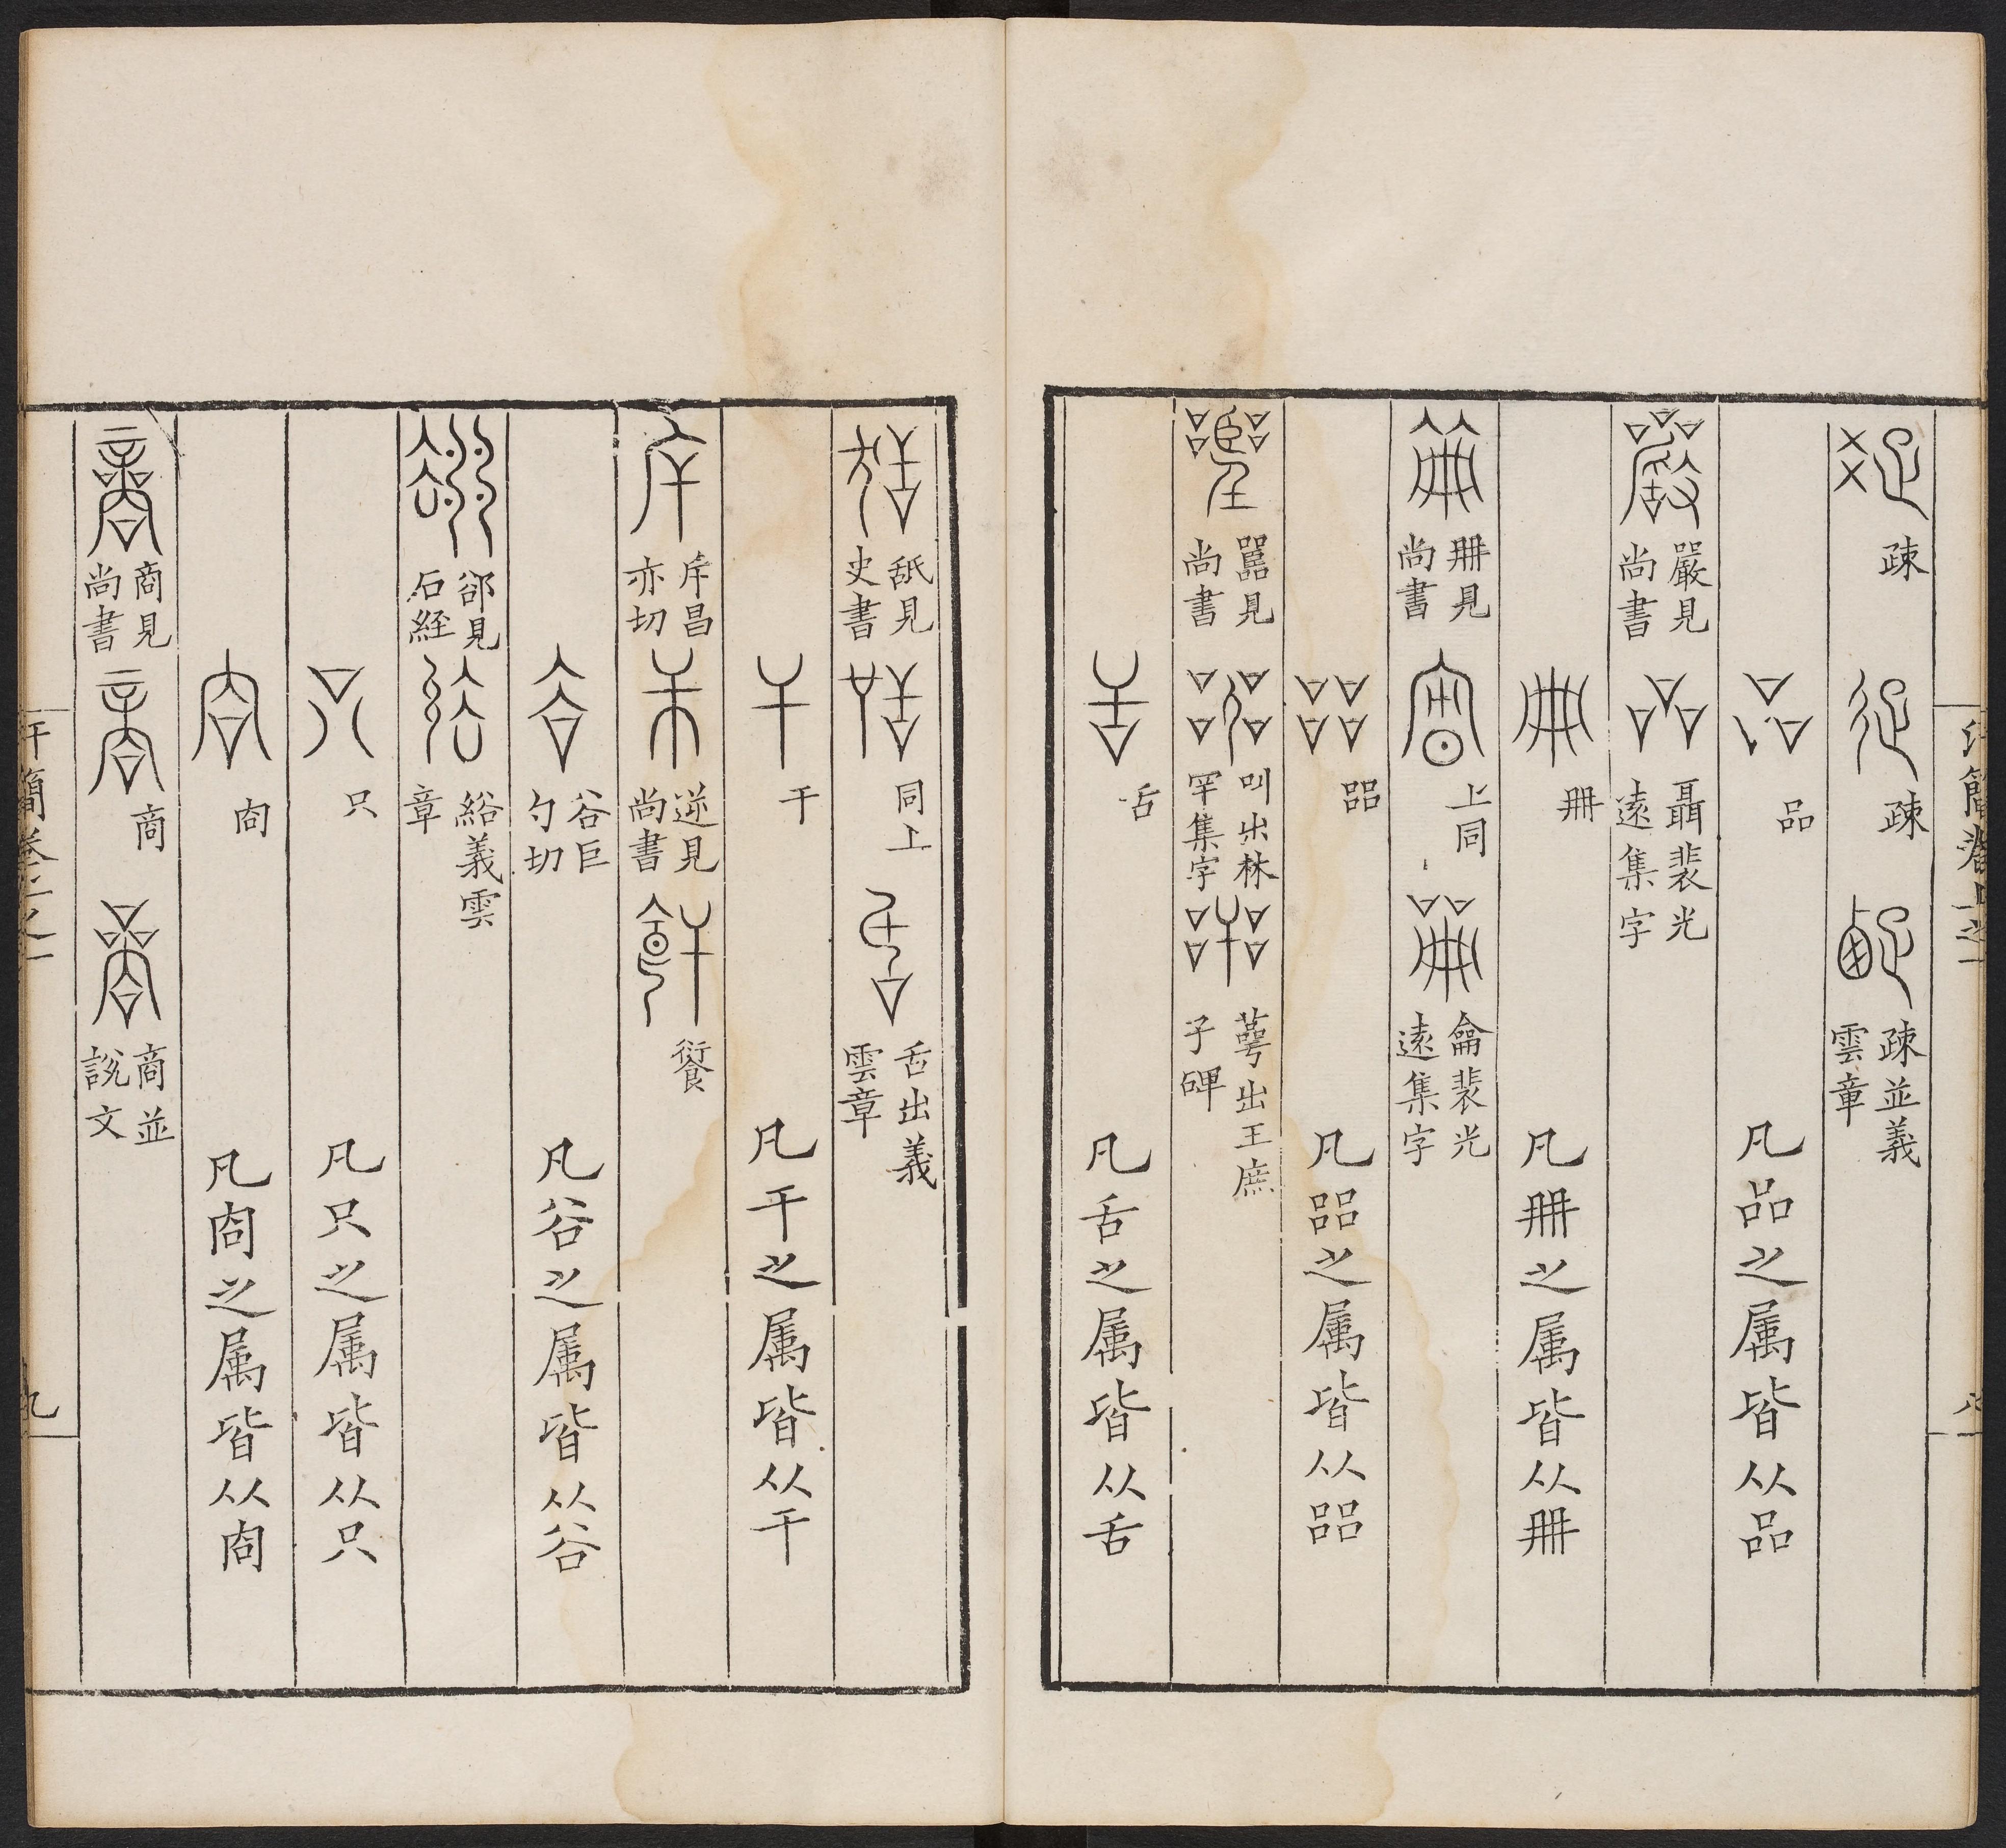 疎 疎 疎並義雲章
品 凡品之属皆从品
嚴見尚書 聶裴光遠集字
冊 凡冊之属皆从冊
冊見尚書 上同 龠裴光遠集字
㗊 凡㗊之属皆从㗊
嚚見尚書 叫出林罕集字 蕚出王庶子碑
舌 凡舌之属皆从舌
舐見史書 同上 舌出義雲章
干 凡干之属皆从干
斥昌亦切 逆見尚書
谷巨勺切 凡谷之属皆从谷
郤見石経 綌義雲章
只 凡只之属皆从只
㕯 凡㕯之属皆从㕯
商見尚書 商 商並説文
汗簡卷上之一
九